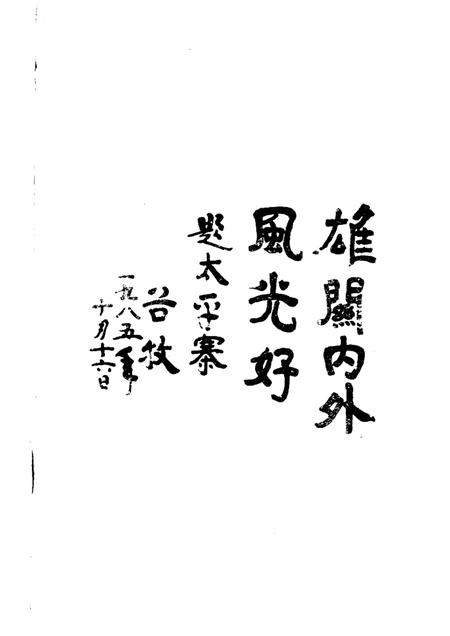 雄關内外
風光好
題太平寨
谷牧
一九八五年
十月十六日